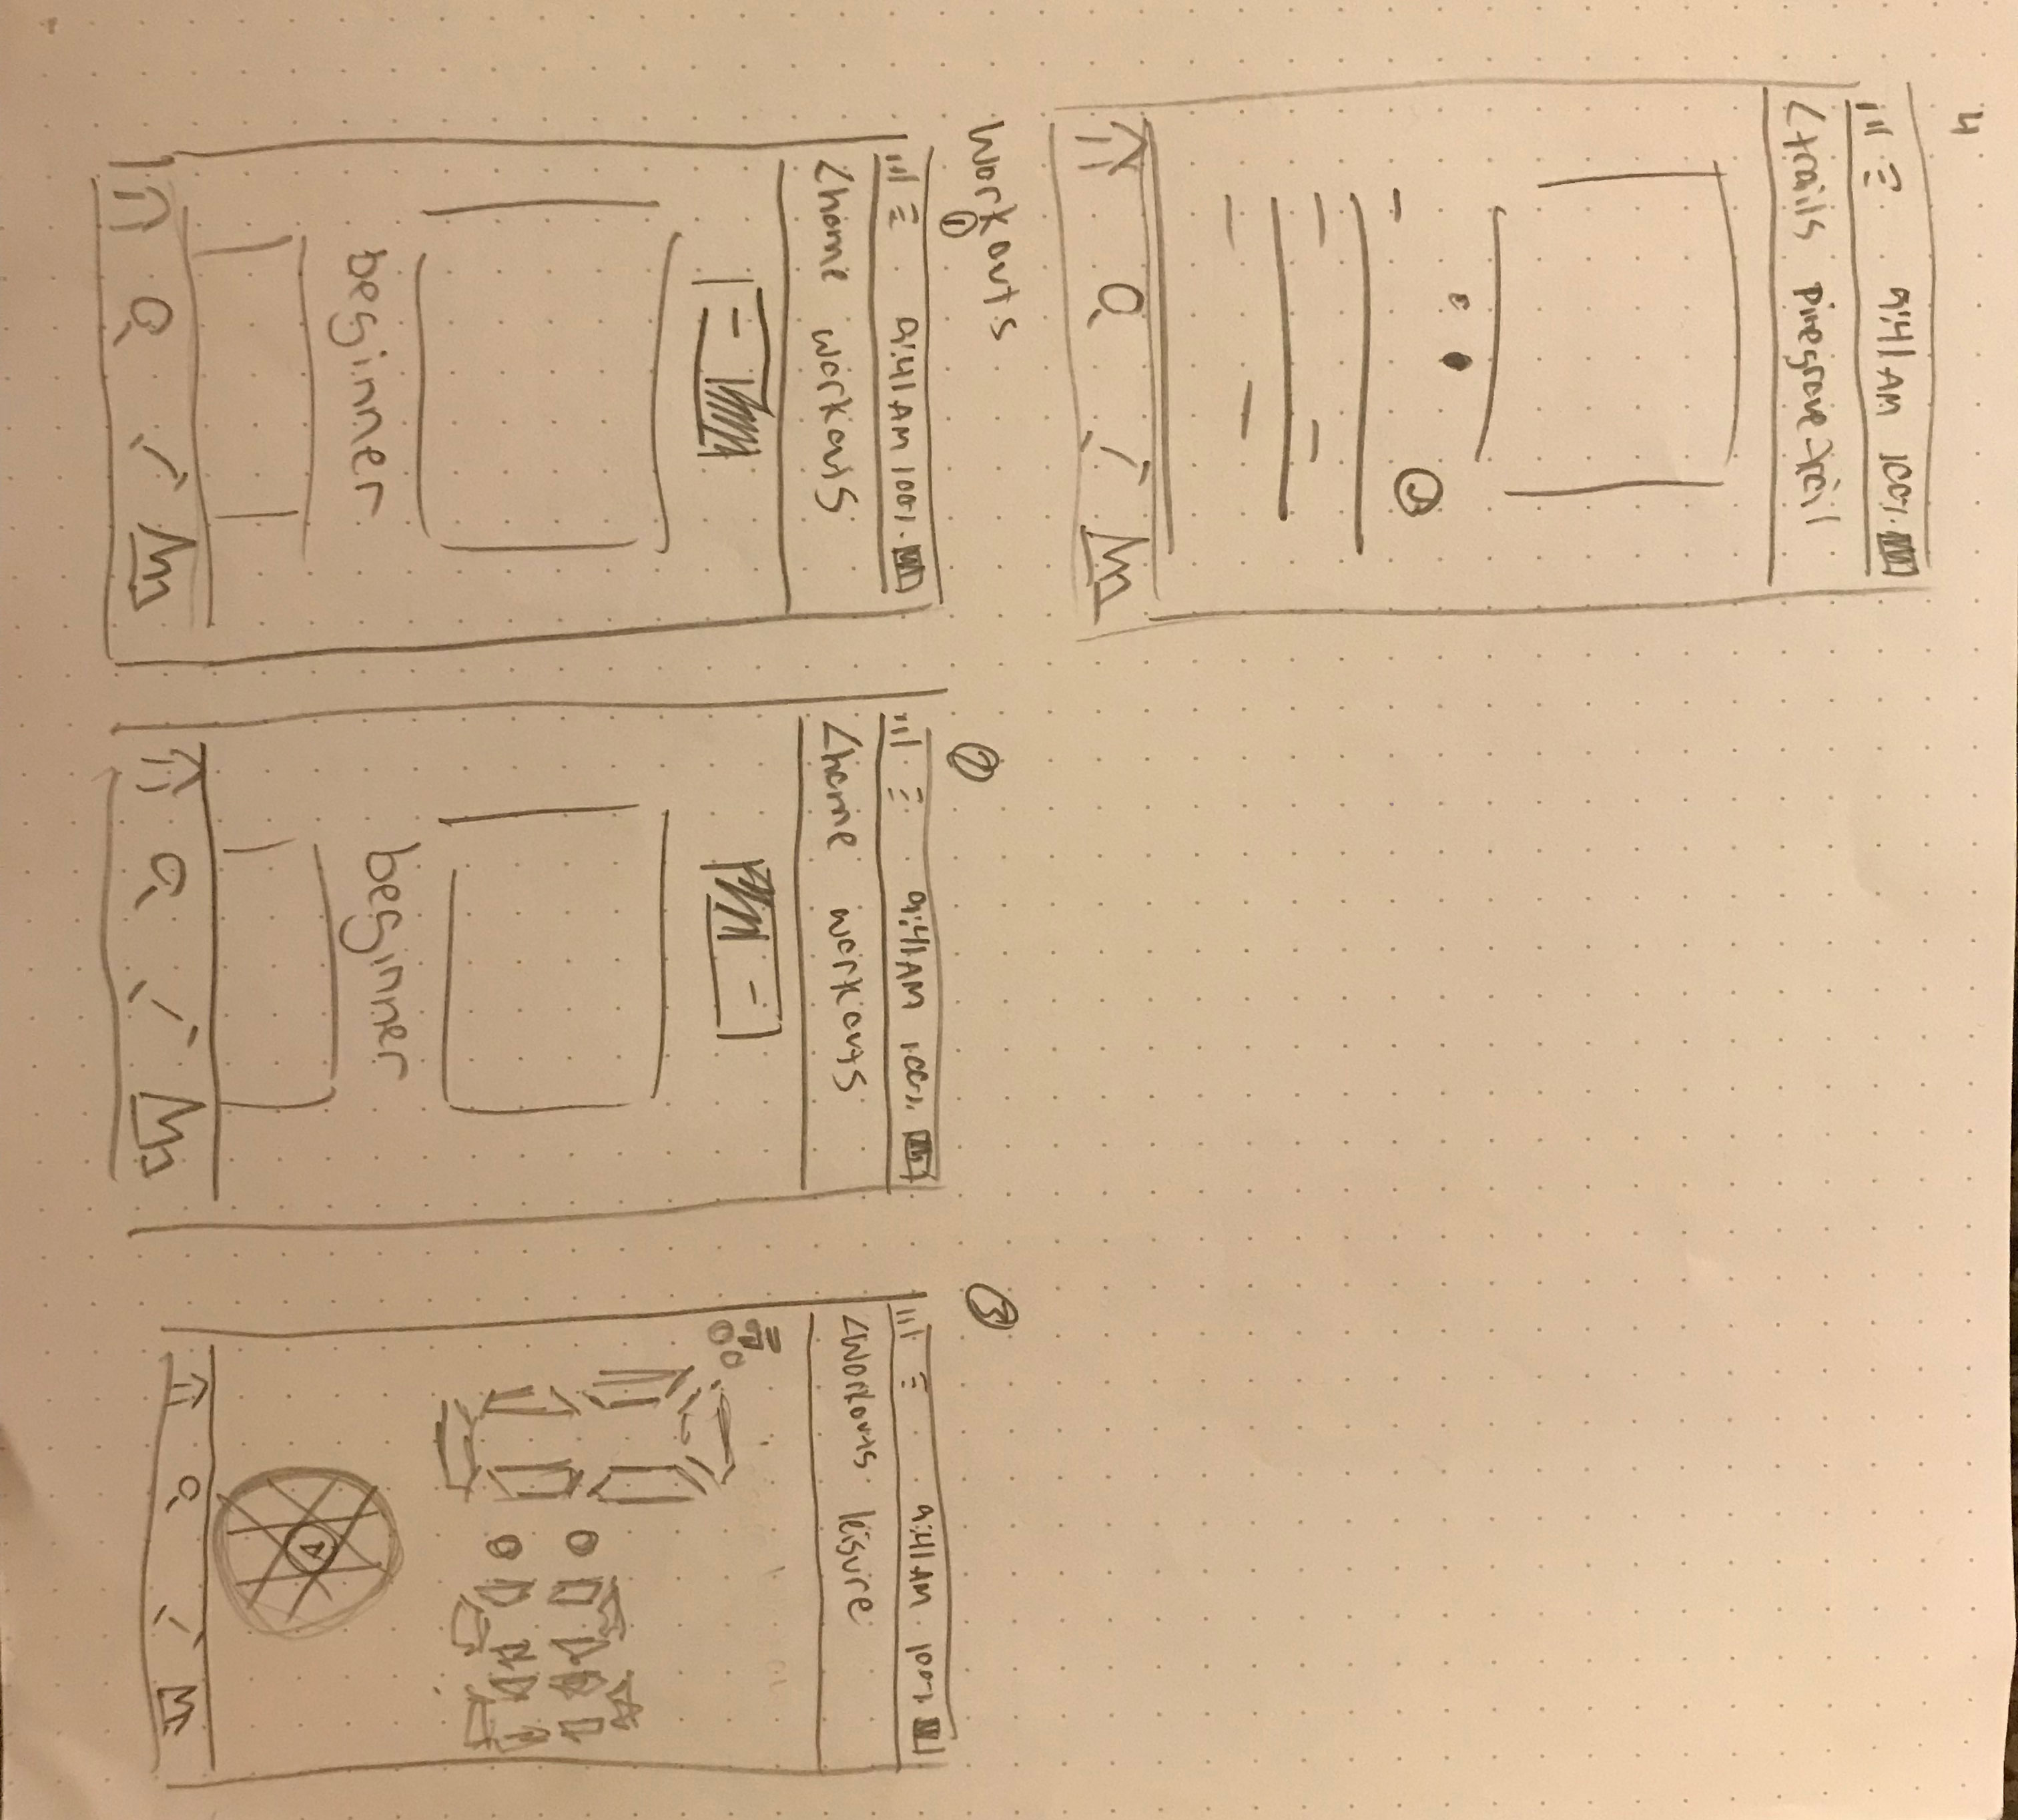 4
9:41 AM 100%
<trails pinegrove trail
Workouts
1
9:41 AM 100%
<home workouts
beginner
2
9:41 AM 100%
<home workouts
beginner
3
9:41 AM 100%
<workouts leisure